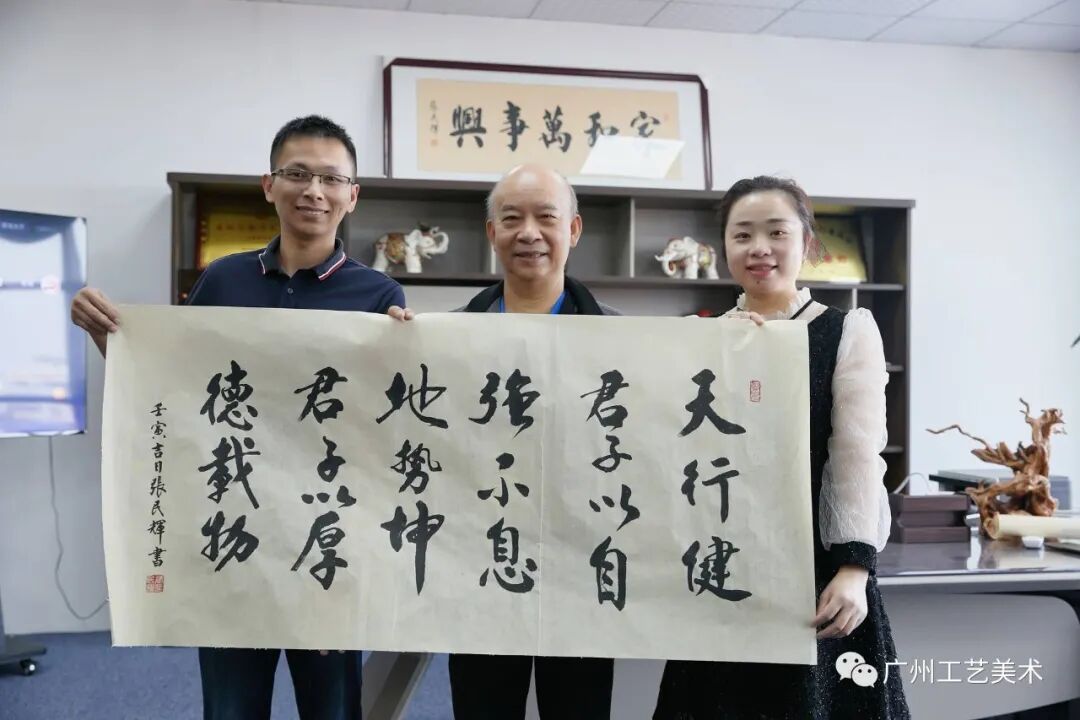 家和萬事興
張民輝
天行健
君子以自
强不息
地勢坤
君子以厚
德載物
壬寅吉日張民輝書
广州工艺美术